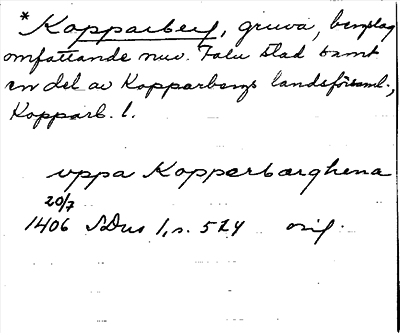 * Kopparberg, gruva, bergslag
omfattande nuv. Falu stad samt
en del av Kopparbergs landsförsaml.,
Kopparb. l.
uppa Kopperbærghena
20/7
1406 SDns 1, s. 524 orig.